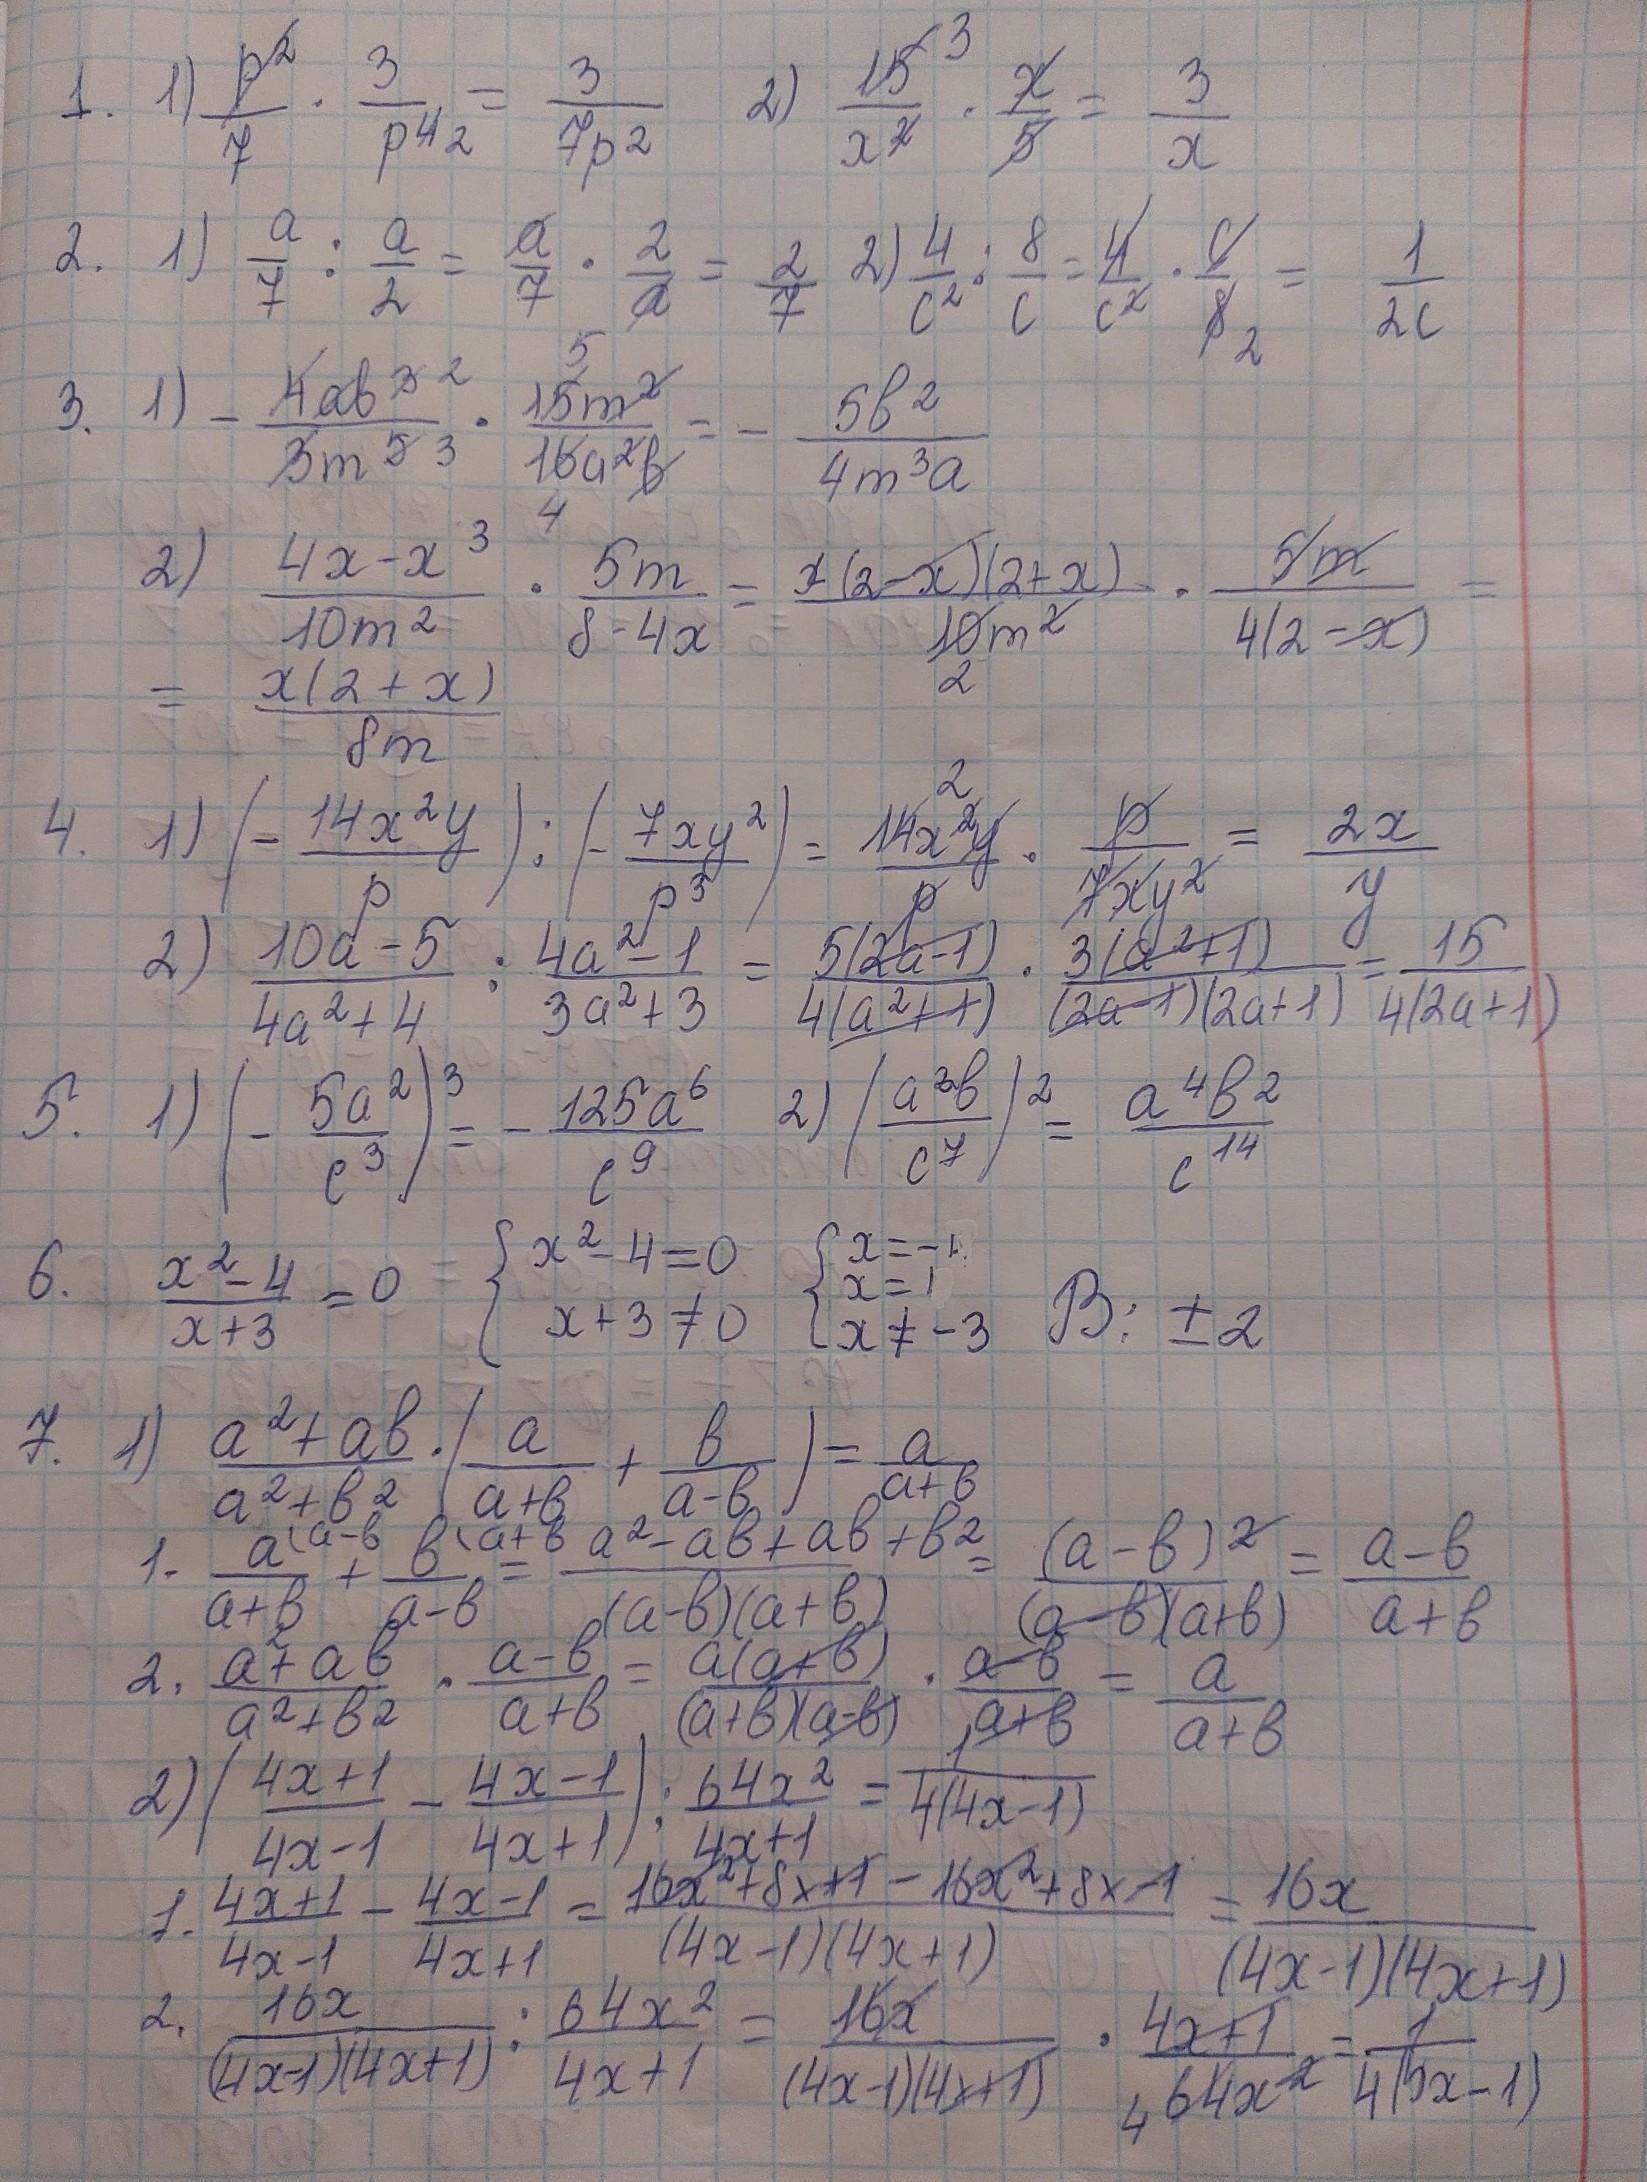 1. 1) p²/7 · 3/p⁴ 2 = 3/7p² 2) 15 3/x² · x/5 = 3/x
2. 1) a/7 : a/2 = a/7 · 2/a = 2/7 2) 4/c² : 8/c = 4/c² · c/8 2 = 1/2c
3. 1) - 4ab³ 2/3m⁵ 3 · 5 15m²/16a²b 4 = - 5b²/4m³a
2) 4x-x³/10m² · 5m/8-4x = x(2-x)(2+x)/10m² 2 · 5m/4(2-x) =
= x(2+x)/8m
4. 1) (- 14x²y/p) : (- 7xy²/p³) = 2 14x²y/p · p/7xy² = 2x/y
2) 10a-5/4a²+4 : 4a²-1/3a²+3 = 5(2a-1)/4(a²+1) · 3(a²+1)/(2a-1)(2a+1) = 15/4(2a+1)
5. 1) (- 5a²/c³)³ = - 125a⁶/c⁹ 2) (a²b/c⁷)² = a⁴b²/c¹⁴
6. x²-4/x+3 = 0 = { x²-4=0 x+3≠0 { x=-1 x=1 x≠-3 В: ±2
7. 1) a²+ab/a²+b² · (a/a+b + b/a-b) = a/a+b
1. a(a-b/a+b + b(a+b/a-b = a²-ab+ab+b²/(a-b)(a+b) = (a-b)²/(a-b)(a+b) = a-b/a+b
2. a²+ab/a²+b² · a-b/a+b = a(a+b)/(a+b)(a-b) · a-b/a+b = a/a+b
2) (4x+1/4x-1 - 4x-1/4x+1) : 64x²/4x+1 = 1/4(4x-1)
1. 4x+1/4x-1 - 4x-1/4x+1 = 16x²+8x+1-16x²+8x-1/(4x-1)(4x+1) = 16x/(4x-1)(4x+1)
2. 16x/(4x-1)(4x+1) : 64x²/4x+1 = 16x/(4x-1)(4x+1) · 4x+1/4 64x² = 1/4( x-1)